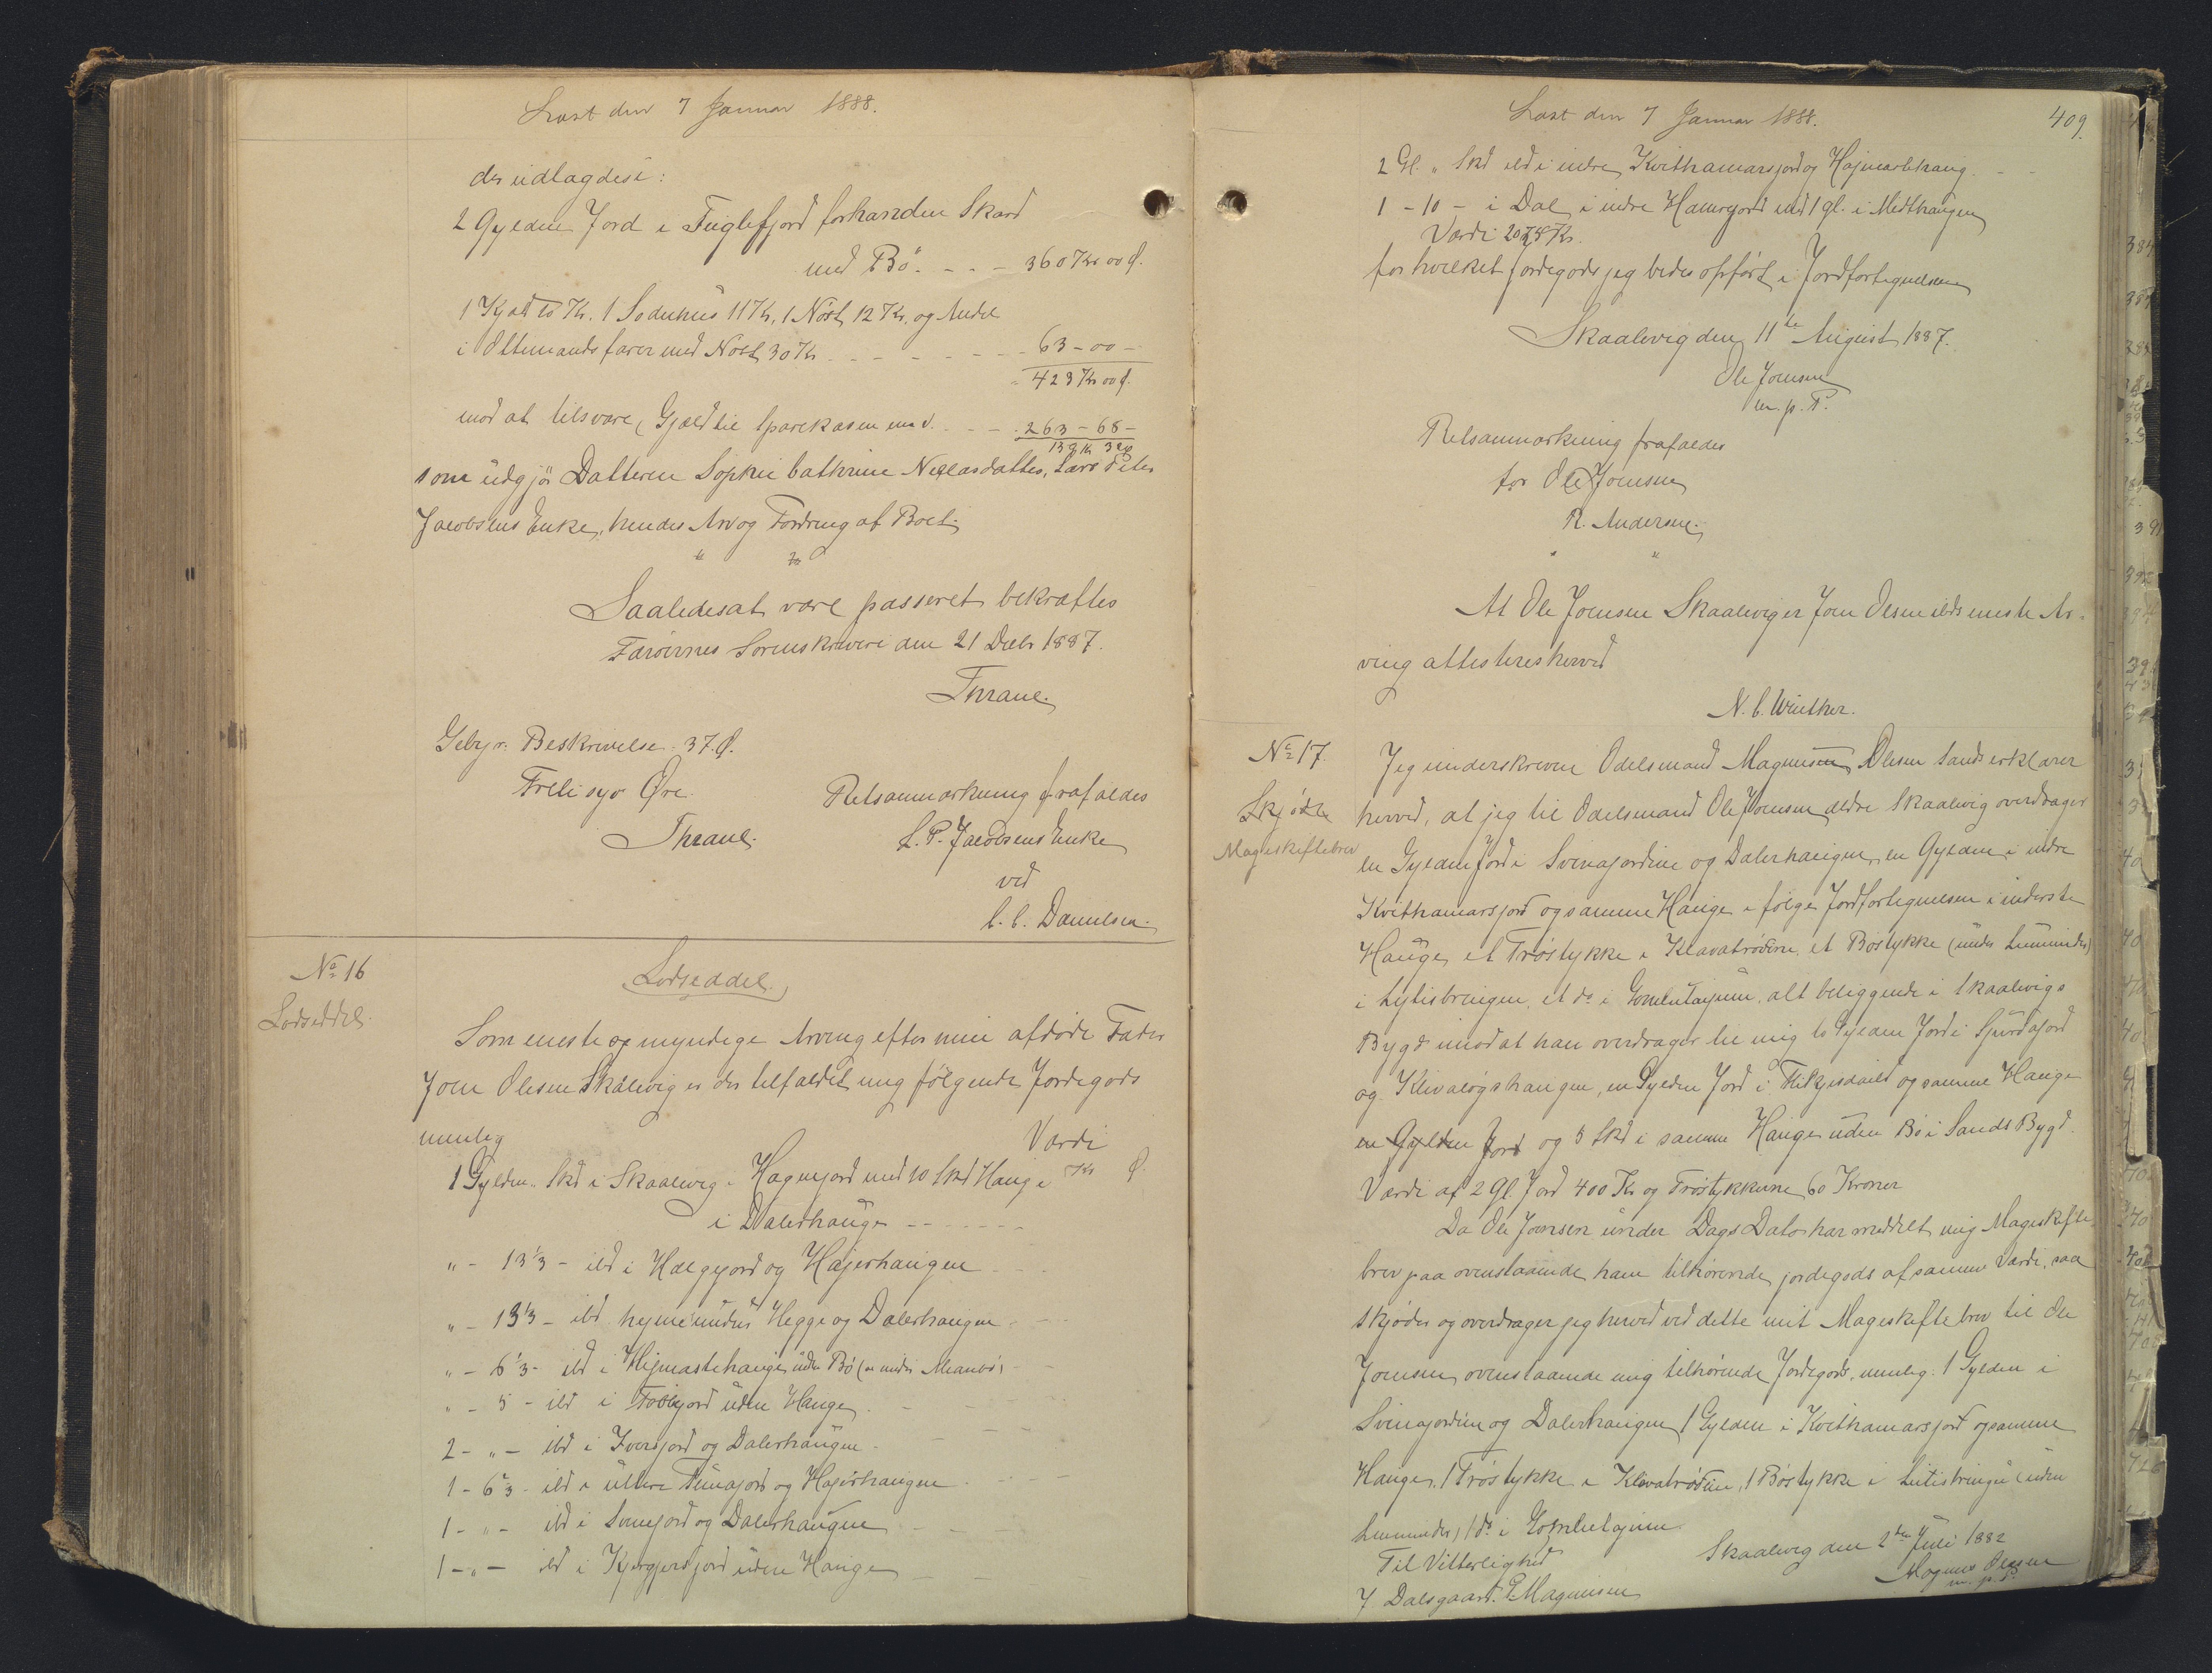 Læst den 7 Januar 1888.
der udlagdes i:
2 Gylden Jord i Fuglefjord forhanden Skard
med Bö. - - - 360 Kr 00 Ø.
1 Hjald 10 Kr. 1 Soduhus 11 Kr, 1 Nöst 12 Kr. og Andel
i Ottemandsfarer med Nöst 30 Kr - - - - - - 63 - 00 -
423 Kr 00 Ø.
mod at tilsvare Gjæld til Sparekassen med - - - 263 - 68 -
som udgjör Datteren Sophie Cathrine Niclasdatter, Lars Peter
Jacobsens Enke, hendes Arv og Fordring af Boet.
" "
Saaledes at være passeret bekræftes
Færöernes Sorenskriveri den 21 Decbr 1887.
Thrane.
Gebyr: Beskrivelse: 37. Ø.
Treti syv Øre.
Retsanmærkning frafaldes
Thrane.
L. P. Jacobsens Enke
ved
C. C. Danielsen.
No 16
Lodseddel.
Lodseddel.
Som eneste og myndige Arving efter min afdöde Fader
Joen Olesen Skålevig er der tilfaldet mig fölgende Jordegods
nemlig Værdi
1 Gylden " Skd i Skaalevig i Hagnejord med 10 Skd Hauge Kr Ø.
i Dalerhauge - - - - - -
" - 13 1/3 - ibd i Hælgejord og Hajerhaugen
" - 13 1/3 - ibd hejme under Hegge og Dalerhaugen
" - 6 2/3 - ibd i Hejmastehauge uden Bö
" - 5 - ibd i jord uden Hauge
2 - " - ibd i Iversjord og Dalerhaugen
1 - 6 2/3 - ibd i ittere jord og Hajerhaugen
1 - " - ibd i Svinejord og Dalerhaugen
1 - " - ibd i jord uden Hauge
Læst den 7 Januar 1888.
409.
2 Gl. " Skd ibd i indre Kvithamarsjord og Hejmastehaug.
1 - 10 - i Dal i indre Hamrejord med 1 gl. i Midthaugen
Værdi 2078 Kr.
for hvilket Jordegods jeg bedes opfört i Jordfortegnelsen
Skaalevig den 11te August 1887.
Ole Joensen
m. p. P.
Retsanmærkning frafaldes
for Ole Joensen
R. Andersen.
" "
At Ole Joensen Skaalevig er Joen Olesen ibds eneste Ar-
ving attesteres herved
N. C. Winther.
No 17.
Skjöde
Mageskiftebrev
Jeg underskrevne Odelsmand Magnus Olesen Sand erklærer
herved, at jeg til Odelsmand Ole Joensen ældre Skaalevig overdrager
en Gylden Jord i Svinajordine og Dalerhaugen, en Gylden i indre
Kvithamarsjord og samme Hauge ifölge Jordfortegnelsen i inderste
Hauge, et Tröstykke i Klavatrödine, et Böstykke (under
i Lytisbringen, et do i alt beliggende i Skaalevigs
Bygd imod at han overdrager til mig 10 Gylden Jord i jord
og haugen, en Gylden Jord i og samme Hauge
en Gylden Jord og 3 Skd i samme Hauge uden Bö i Sands Bygd.
Værdi af 2 Gl. Jord 400 Kr og Tröstykkerne 60 Kroner
Da Ole Joensen under Dags Dato har meddelt mig Mageskifte-
brev paa ovenstaaende ham tilhörende jordegods af samme Værdi, saa
skjöder og overdrager jeg herved ved dette mit Mageskiftebrev til Ole
Joensen ovenstaaende mig tilhörende Jordegods, nemlig: 1 Gylden i
Svinajordine og Dalerhaugen 1 Gylden i Kvithamarsjord og samme
Hauge, 1 Tröstykke i Klavatrödine, 1 Böstykke i
1 do i
Til Vitterlighed
Skaalevig den 2den Juli 1882
J. Dalsgaard. P. Magnusen
Magnus Olesen
m. p. P.